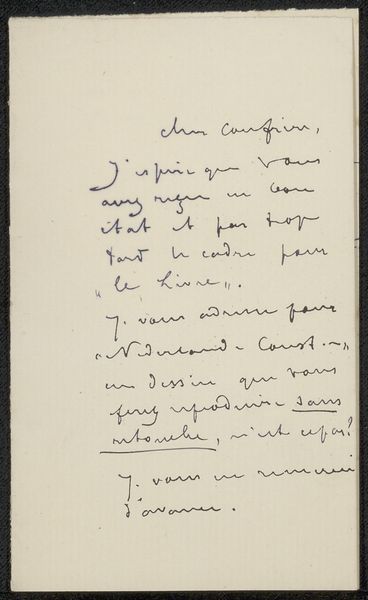 cher confrère,
J'espère que vous
avez reçu en bon
état et pas trop
tard le cadre pour
"le Livre".
Je vous adresse pour
un dessin que vous
ferez reproduire sans
retouche, n'est ce pas?
Je vous en remercie
d'avance.